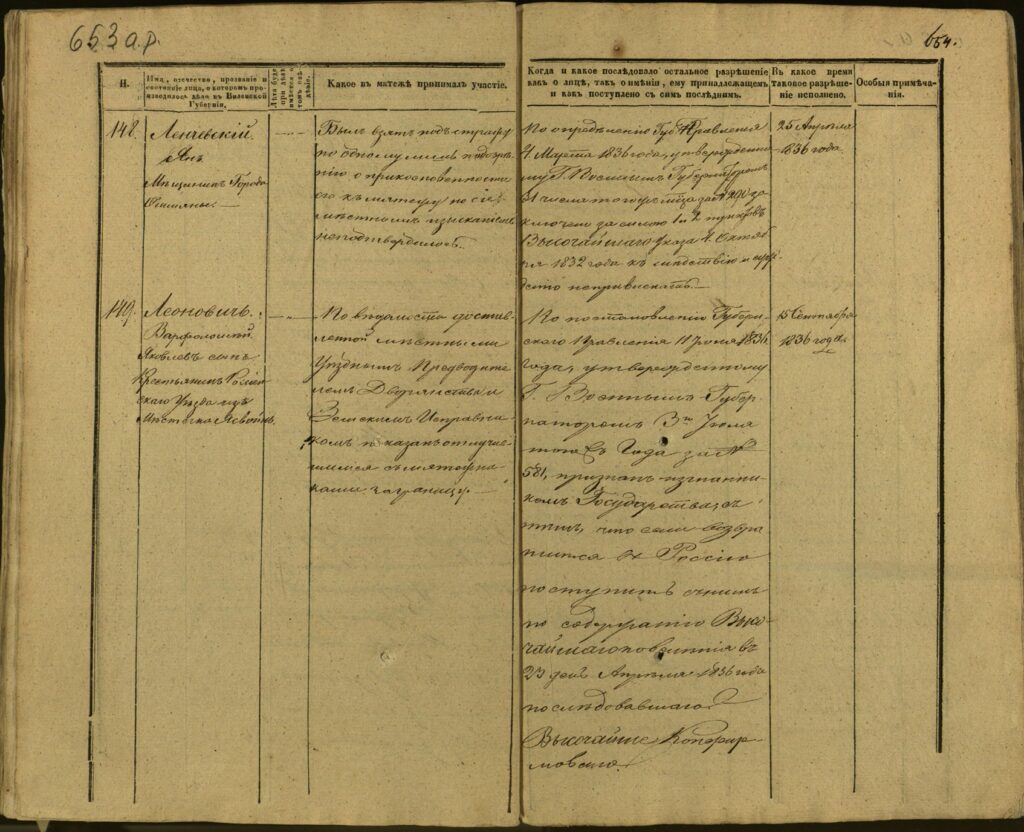 653 а.р.
654.
Н.
Имя, отечество, прозваніе и
состояніе лица, о которомъ про-
изводилось дѣло въ Виленской
Губерніи.
Какое въ мятежѣ принималъ участіе.
Когда и какое послѣдовало остальное разрѣшеніе
какъ о лицѣ, такъ о имѣніи, ему принадлежащемъ
и какъ поступлено съ симъ послѣднимъ.
Въ какое время
таковое разрѣше-
ніе исполнено.
Особыя примѣча-
нія.
148.
Ленчевскій
Янъ
Мѣщанинъ Города
Ошмяны.
Былъ взятъ подъ стражу
по одному лишь подозрѣ-
нію о прикосновенности
его къ мятежу но
мѣстнымъ изысканіемъ
неподтвердилось.
По опредѣленію Губ. Правленія
4. Марта 1836 года, утвержденно-
му Г. Военнымъ Губернаторомъ
31 числа того мѣсяца за № 290 за-
ключено за силою 1 и 2 пунктовъ
Высочайшаго Указа 4. Октяб-
ря 1832 года къ слѣдствію и суж-
денію непривлекать.
25 Апрѣля
1836 года.
149.
Леоновичъ.
Варфоломей
Яковлевъ сынъ
Крестьянинъ Россіен-
скаго Уѣзда изъ
Мѣстечка Ясвойнь.
По вѣдомости достав-
ленной мѣстными
Уѣзднымъ Предводите-
лемъ Дворянства и
Земскимъ Исправни-
комъ показанъ отлучив-
шимся съ мятежни-
ками заграницу.
По постановленію Губерн-
скаго Правленія 11 Іюня 1836
года, утвержденному
Г. Военнымъ Губер-
наторомъ 3го Іюля
того жъ Года за №
581, признанъ изгнанни-
комъ Государства, съ
тѣмъ, что если возвра-
тится въ Россію
поступить съ нимъ
по содержанію Высо-
чайшаго повелѣнія въ
23 день Апрѣля 1836 года
послѣдовавшаго.
Высочайше Конфир-
мованно.
15 Сентября
1836 года.